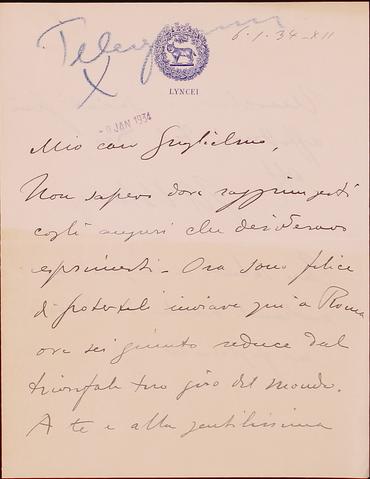 Telegramma
X
6.1.34-XII
LYNCEI
- 9 JAN 1934
Mio caro Guglielmo,
Non sapevo dove raggiungerti
cogli auguri che desideravo
esprimerti - Ora sono felice
di poterteli inviare qui a Roma
ove sei giunto reduce dal
trionfale tuo giro del mondo.
A te e alla gentilissima